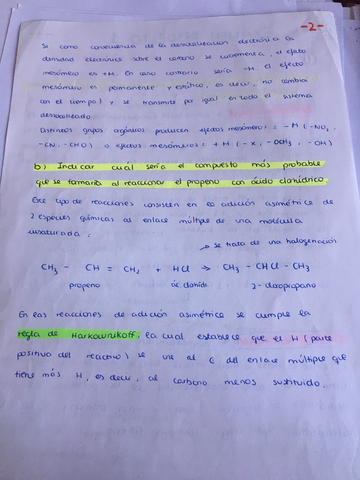 -2-
Si como consecuencia de la deslocalización electrónica la
densidad electrónica sobre el carbono se incrementa, el efecto
mesómero es +M. En caso contrario sería -M. El efecto
mesómero es permanente y estático, es decir, no cambia
con el tiempo y se transmite por igual en todo el sistema
deslocalizado.
Distintos grupos orgánicos producen efectos mesómeros: -M (-NO2,
-CN, -CHO) o efectos mesómeros: +M (-X, -OCH3, -OH)
b) Indicar cuál sería el compuesto más probable
que se formaría al reaccionar el propeno con ácido clorhídrico.
Este tipo de reacciones consisten en la adición asimétrica de
2 especies químicas al enlace múltiple de una molécula
insaturada:
→ Se trata de una halogenación
CH3 - CH = CH2 + HCl → CH3 - CHCl - CH3
propeno ác. clorhid. 2-cloropropano
En las reacciones de adición asimétrica se cumple la
regla de Markownikoff, la cual establece que el H (parte
positiva del reactivo) se une al C del enlace múltiple que
tiene más H, es decir, al carbono menos sustituido.